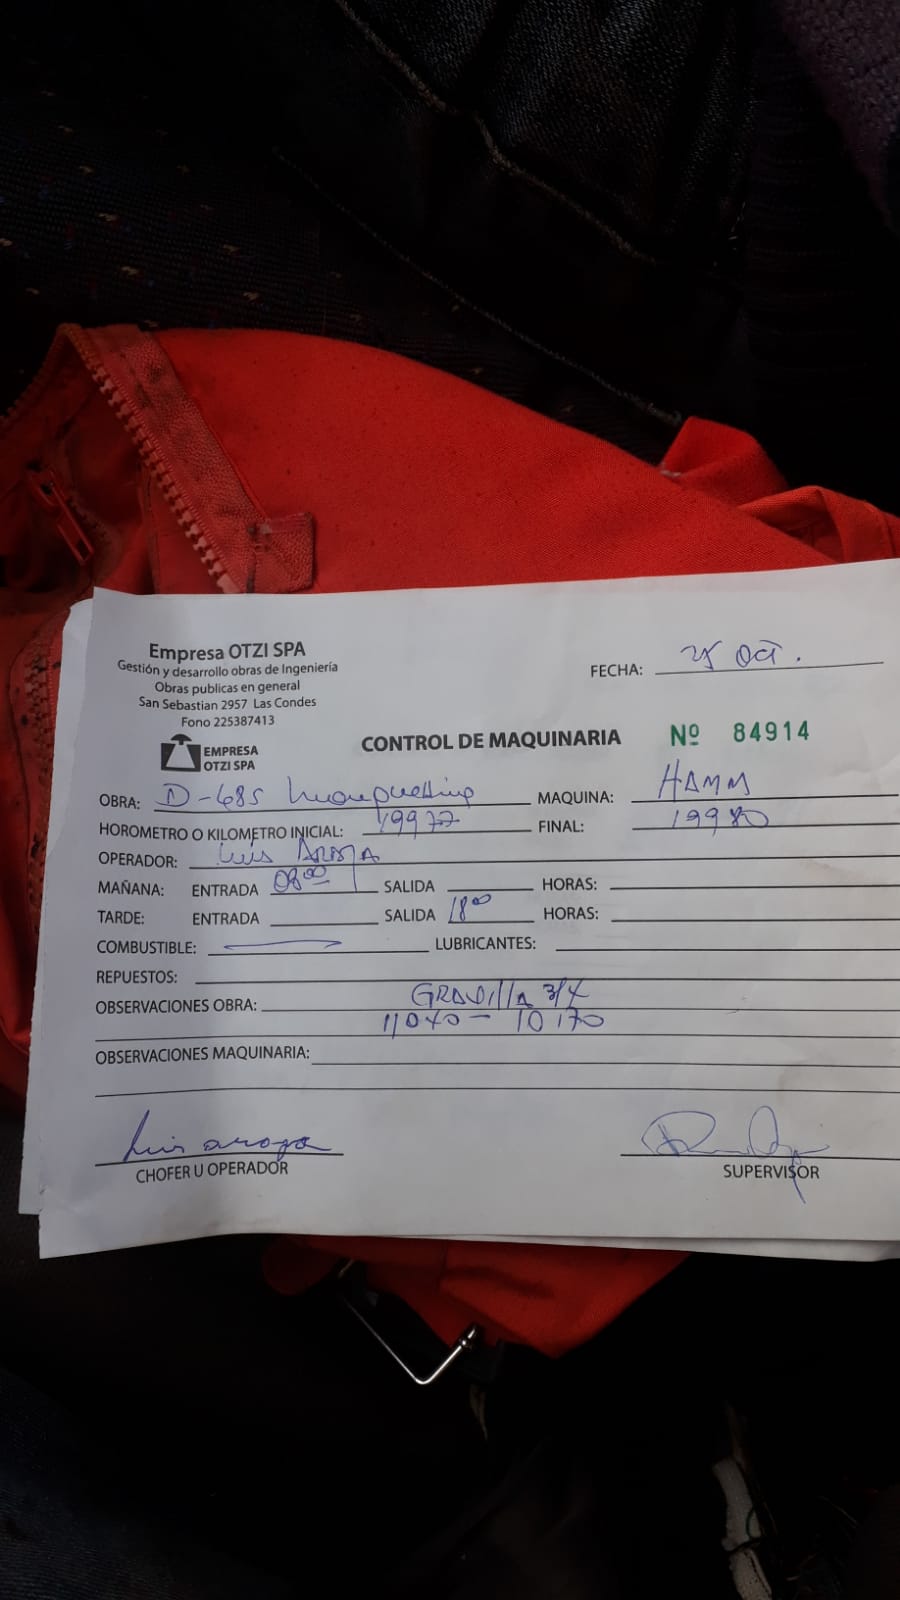 Empresa OTZI SPA
Gestión y desarrollo obras de Ingeniería
Obras publicas en general
San Sebastian 2957 Las Condes
Fono 225387413
EMPRESA
OTZI SPA
FECHA: 25 OCT.
CONTROL DE MAQUINARIA Nº 84914
OBRA: D-685 MAQUINA: HAMM
HOROMETRO O KILOMETRO INICIAL: 19977 FINAL: 19980
OPERADOR: Luis Aroya
MAÑANA: ENTRADA 08:00 SALIDA HORAS:
TARDE: ENTRADA SALIDA 18:00 HORAS:
COMBUSTIBLE: LUBRICANTES:
REPUESTOS:
OBSERVACIONES OBRA: GRAVILLA 3/4
11040 - 10170
OBSERVACIONES MAQUINARIA:
Luis aroya
CHOFER U OPERADOR
SUPERVISOR